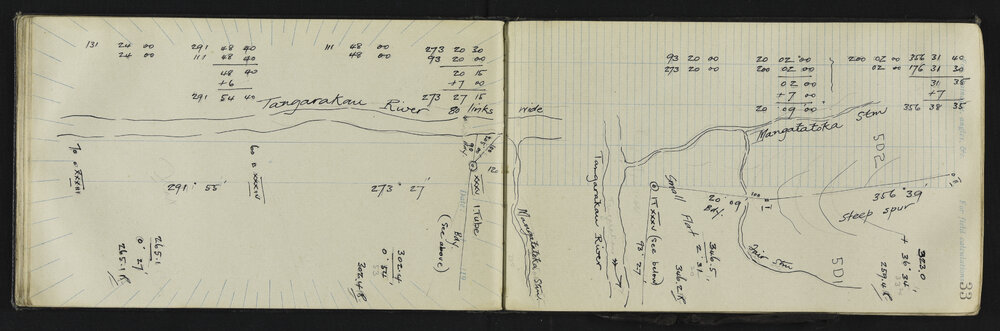 131 24 00 291 48 40 111 48 00 273 20 30
24 00 111 48 40 48 00 93 20 00
48 40 20 15
+6 +7 00
291 54 40 273 27 15
Tangarakau River 80 links wide
70 o XXXIII
60 o XXXIV
291° 55'
273° 27'
XXXV I Tube
Bdy.
(see above)
265.1
0° 27'
265.1 R
302.4
0° 54'
302.4 R
Mangatatoka Stm
93 20 00 20 02 00 200 02 00 356 31 40
273 20 00 200 02 00 02 00 176 31 30
02 00 31 35
+7 00 +7
20 09 00 356 38 35
Mangatatoka Stm
Tangarakau River
IT XXXV (see below)
93° 27'
Small Flat
20° 09'
Bdy.
100
356° 39'
Steep spur
SD2
SD1
Stm
366.5
346.2 R
323.0
+ 36° 34'
259.4 R
33